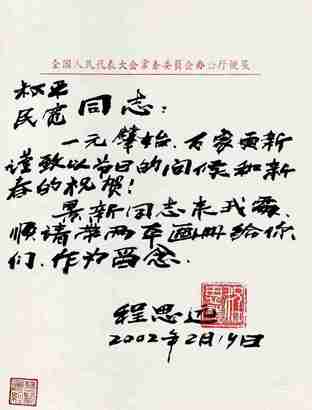 全国人民代表大会常务委员会办公厅便笺
叔平
民宽同志：
一元肇始、万家更新
谨致以节日的问候和新
春的祝贺！
景新同志来我处、
顺请带两本画册给你
们、作为留念.
程思远
2002年2月19日